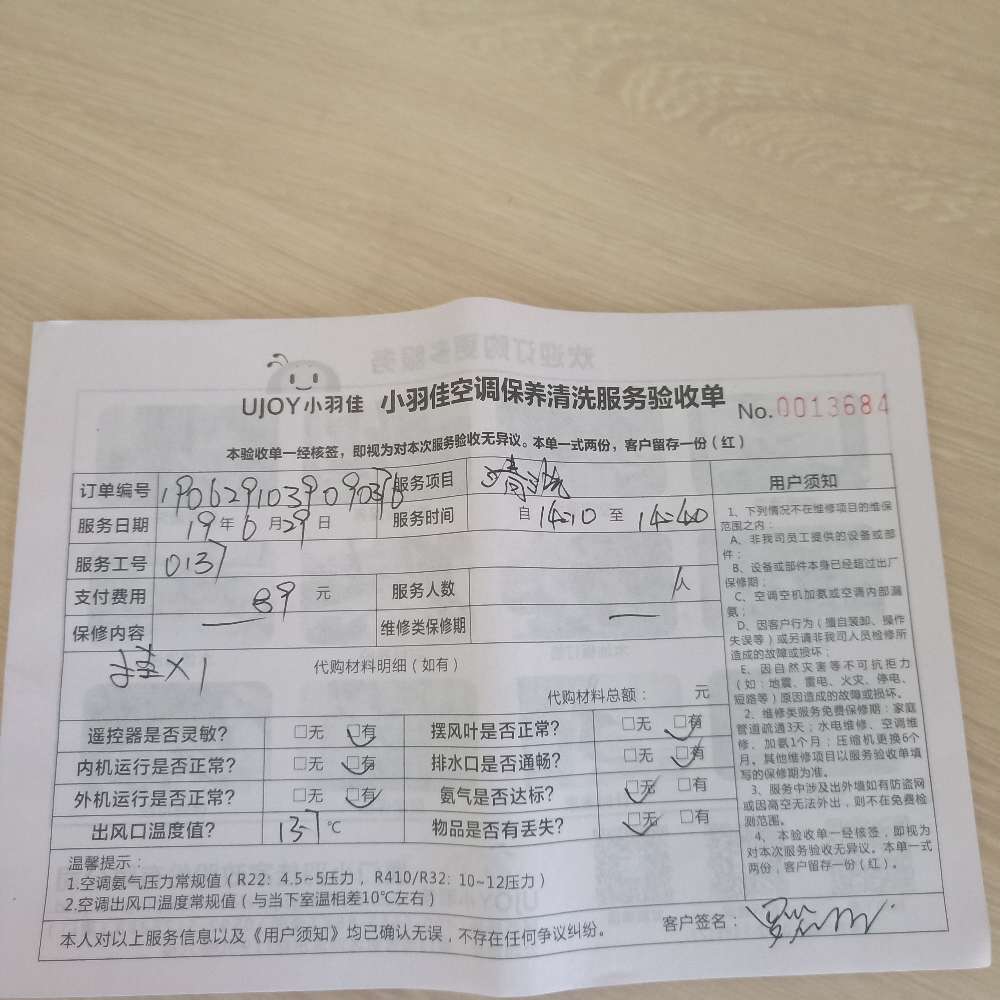 UJOY小羽佳 小羽佳空调保养清洗服务验收单 No.0013684
本验收单一经核签，即视为对本次服务验收无异议。本单一式两份，客户留存一份（红）
订单编号 服务项目 清洗
服务日期 19年6月29日 服务时间 自14:10至14:40
服务工号 0137
支付费用 89元 服务人数 1人
保修内容 — 维修类保修期 —
挂×1 代购材料明细（如有）
代购材料总额： 元
遥控器是否灵敏? □无 □有 摆风叶是否正常? □无 □有
内机运行是否正常? □无 □有 排水口是否通畅? □无 □有
外机运行是否正常? □无 □有 氨气是否达标? □无 □有
出风口温度值? 137℃ 物品是否有丢失? □无 □有
温馨提示：
1.空调氨气压力常规值（R22: 4.5~5压力，R410/R32: 10~12压力）
2.空调出风口温度常规值（与当下室温相差10℃左右）
本人对以上服务信息以及《用户须知》均已确认无误，不存在任何争议纠纷。 客户签名：
用户须知
1、下列情况不在维修项目的维保
范围之内：
A、非我司员工提供的设备或部
件；
B、设备或部件本身已经超过出厂
保修期；
C、空调空机加氨或空调内部漏
氨；
D、因客户行为（擅自装卸、操作
失误等）或另请非我司人员检修所
造成的故障或损坏；
E、因自然灾害等不可抗拒力
（如：地震、雷电、火灾、停电、
短路等）原因造成的故障或损坏。
2、维修类服务免费保修期：家庭
管道疏通3天；水电维修、空调维
修、加氨1个月；压缩机更换6个
月。其他维修项目以服务验收单填
写的保修期为准。
3、服务中涉及出外墙如有防盗网
或因高空无法外出，则不在免费检
测范围。
4、本验收单一经核签，即视为
对本次服务验收无异议。本单一式
两份，客户留存一份（红）。